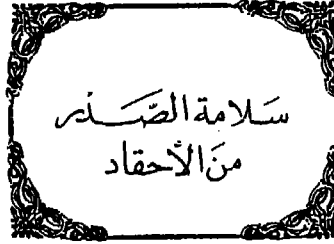 سَلامة الصَّدْر
مِنَ الأحقاد